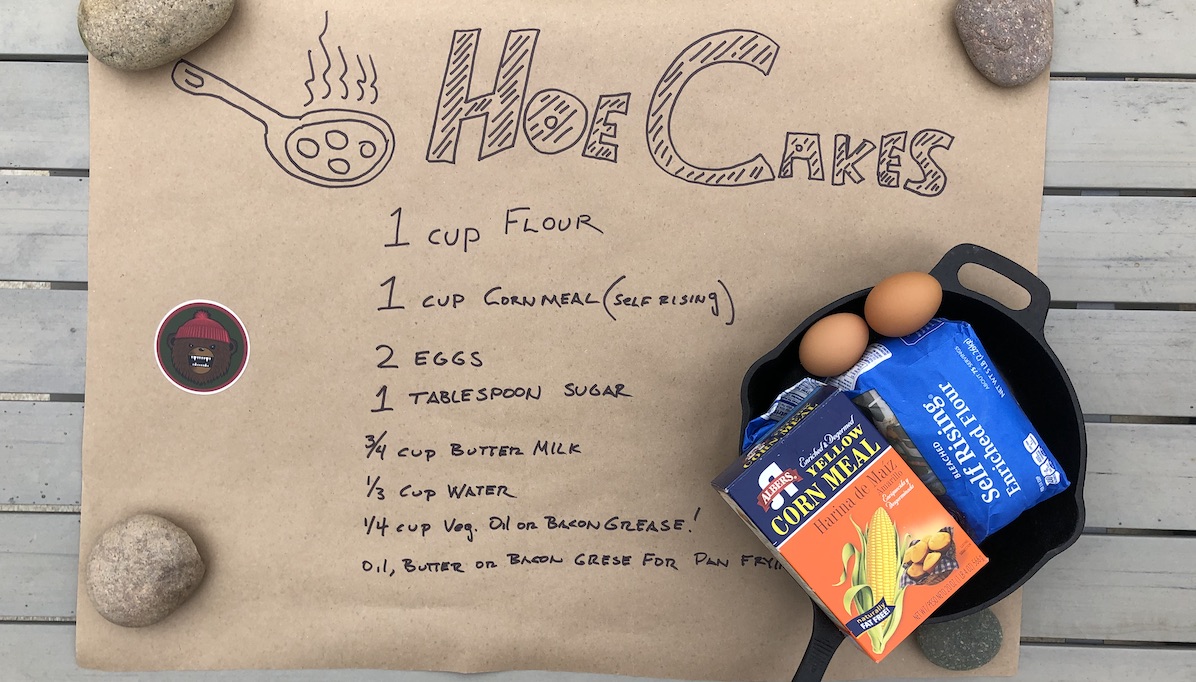 HOE CAKES
1 CUP FLOUR
1 CUP CORNMEAL (SELF RISING)
2 EGGS
1 TABLESPOON SUGAR
3/4 CUP BUTTER MILK
1/3 CUP WATER
1/4 CUP VEG. OIL OR BACON GREASE!
OIL, BUTTER OR BACON GRESE FOR PAN
NET WT 5 LB (2.26kg)
ABOUT 75 SERVINGS
BLEACHED
Self Rising
Enriched Flour
CORN MEAL
Enriched & Degermed
ALBERS
YELLOW
CORN MEAL
Harina de Maíz
Amarillo
Enriquecida y
Desgerminada
naturally
FAT FREE!